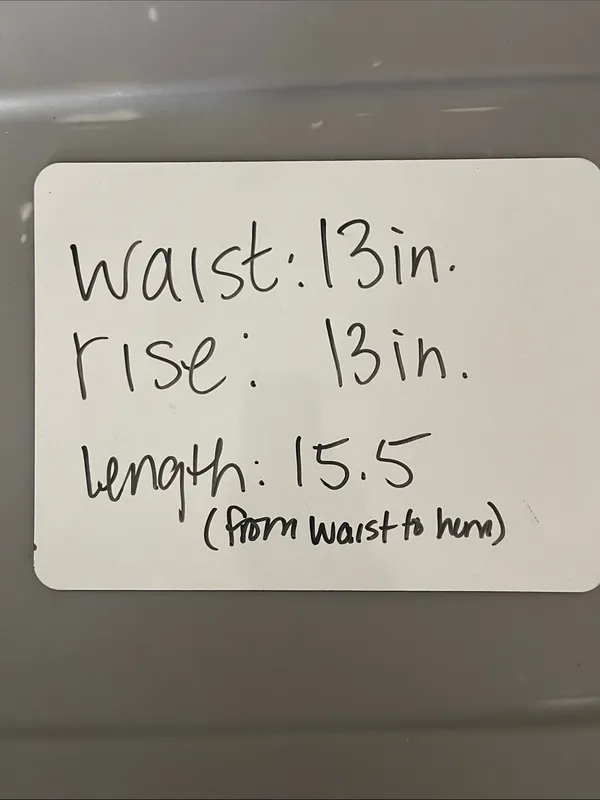 waist: 13in.
rise: 13in.
length: 15.5
(from waist to hem)